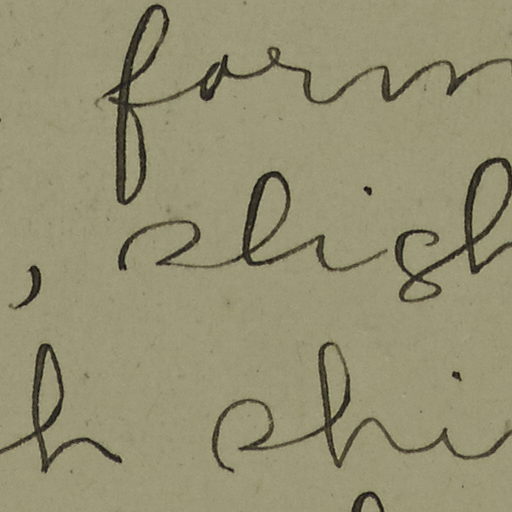 form
, sligh
h shi